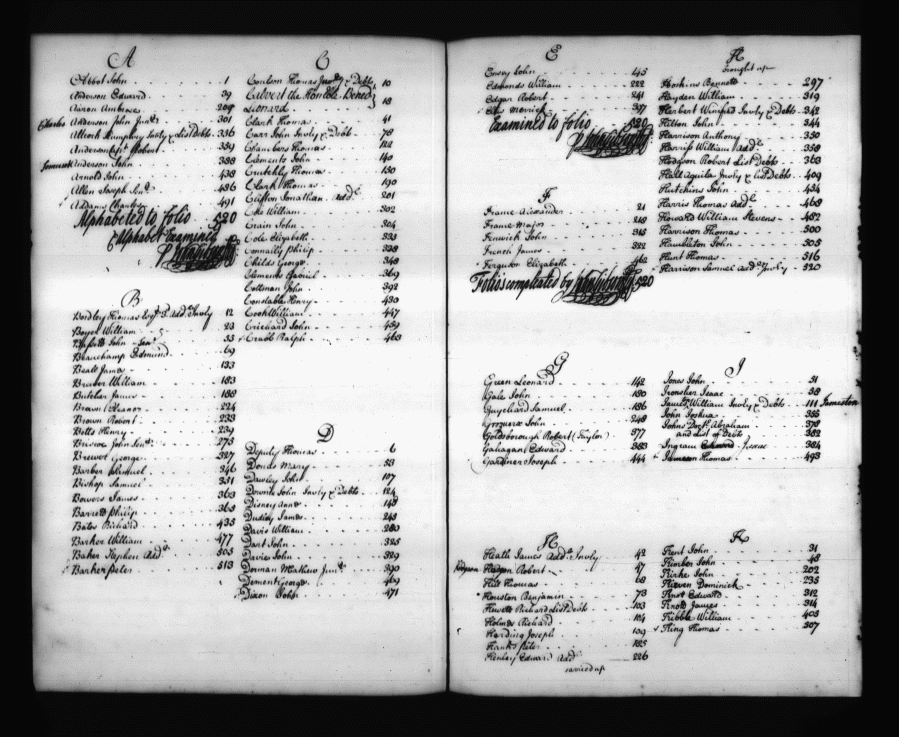 A
Abbot John 1
Anderson Edward 39
Aixon Ambrose 209
Charles Anderson John Junr 301
Allcock Humphrey Invty & list Debts 336
Anderson Robert 359
Anderson John 388
Arnold John 438
Allen Joseph Senr 486
Adams Charles 491
Alphabeted to folio 520
& Alphabet Examined
B
Bordley Thomas Esqr Add. Invty 12
Boyce William 23
John Senr 33
Beauchamp Edmund 69
Beall James 133
Brewer William 183
Butcher James 188
Brown Eleanor 224
Brown Robert 233
Betts Henry 239
Briscoe John Senr 273
Brewer George 327
Barber Samuel 346
Bishop Samuel 351
Bowers James 363
Barrett Philip 365
Bates Richard 435
Barker William 477
Baker Stephen Add. 505
Barker peter 513
C
Coulson Thomas Invty & Debts 10
Culvert the Honble Bened
Leonard 18
Clark Thomas 41
Carr John Invty & Debts 78
Chambers Thomas 122
Clements John 140
Crutchly Thomas 150
Clark Thomas 190
Clifton Jonathan Add. 201
Coke William 302
Crain John 304
Cole Elizabeth 333
Connally Philip 338
Childs George 348
Clements Gabriel 369
Cottman John 392
Constable Henry 430
Cook William 447
Crichard John 459
Crabb Ralph 463
D
Deputy Thomas 6
Donas Mary 53
Dawley John 107
Downie John Invty & Debts 124
Disney Anne 148
Dudley James 243
Davis William 280
Dart John 325
Davis John 329
Dorman Mathew Junr 390
Dement George 469
Dixon John 471
E
Ensey John 145
Edmonds William 222
Edgar Robert 241
Merrick 397
Examined to folio 520
F
Frame Alexander 21
Frame Major 218
Fenwick John 315
French James 322
Ferguson Elizabeth 462
Folio's compleated by 520
G
Green Leonard 142
Gale John 180
Samuel 186
John 248
Goldsborough Robert (Taylor) 377
Gahagan Edward 383
Gardiner Joseph 444
H
Heath James Add. Invty 42
Hodgson Robert 47
Hill Thomas 68
Houston Benjamin 73
Hewett Richard List Debts 103
Holmes Richard 124
Harding Joseph 139
Hanks peter 182
Henley Edward Add. 226
carried up
H
brought up
Hopkins Bennett 297
Hayden William 319
Herbert Winifred Invty & Debts 342
Hilton John 344
Harrison Anthony 350
Harriss William Add. 358
Hodgson Robert List Debts 363
Hall aquila Invty & list Debts 409
Hutchins John 434
Harris Thomas Add. 468
Howard William Stevens 482
Harrison Thomas 500
Hambleton John 505
Hunt Thomas 516
Harrison Samuel Add. Invty 520
I
Jones John 51
Isaac 58
William Invty & Debts 111 Jameston
John Joshua 355
Johns Docr Abraham 378
and List of Debts 382
Ingram Isaac 384
Jameson Thomas 493
K
Kent John 31
Kimber John 48
Kirke John 202
Kirwen Dominick 235
Knot Edward 312
Knott James 314
Kibble William 403
King Thomas 507